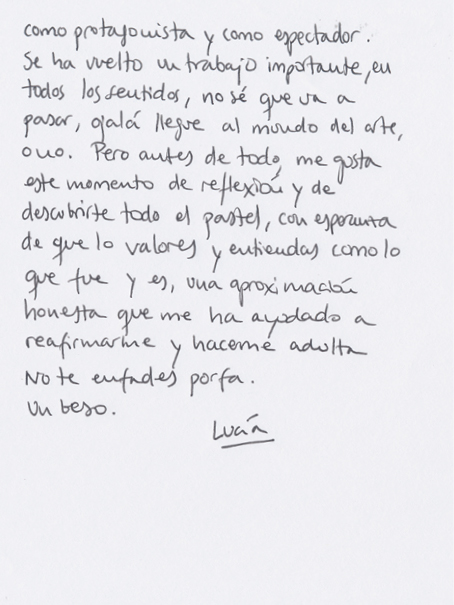 como protagonista y como espectador.
Se ha vuelto un trabajo importante, en
todos los sentidos, no sé que va a
pasar, ojalá llegue al mundo del arte,
o no. Pero antes de todo, me gusta
este momento de reflexión y de
descubrirte todo el pastel, con esperanza
de que lo valores y entiendas como lo
que fue y es, una aproximación
honesta que me ha ayudado a
reafirmarme y hacerme adulta
No te enfades porfa.
Un beso.